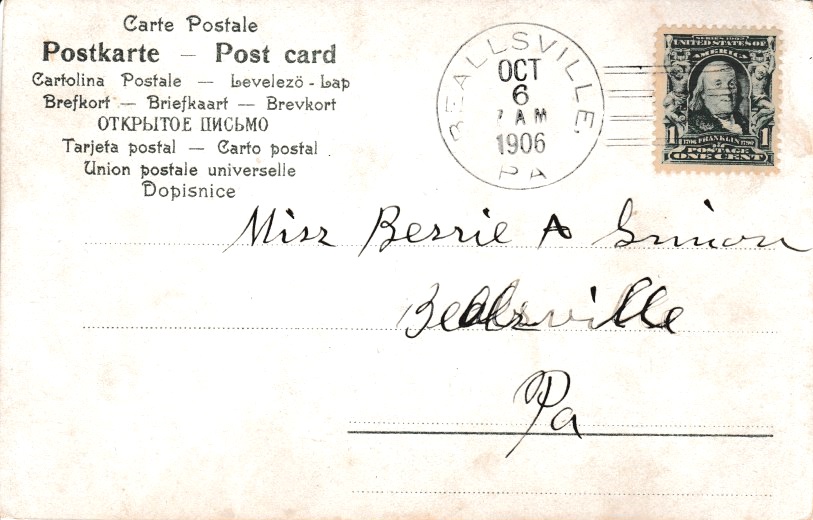 Carte Postale
Postkarte — Post card
Cartolina Postale — Levelezö - Lap
Brefkort — Briefkaart — Brevkort
ОТКРЫТОЕ ПИСЬМО
Tarjeta postal — Carto postal
Union postale universelle
Dopisnice
BEALLSVILLE.
OCT
6
7 AM
1906
PA
SERIES 1902
UNITED STATES OF
AMERICA
1 FRANKLIN 1
1706 1790
POSTAGE
ONE CENT
Miss Bessie A
Beallsville
Pa